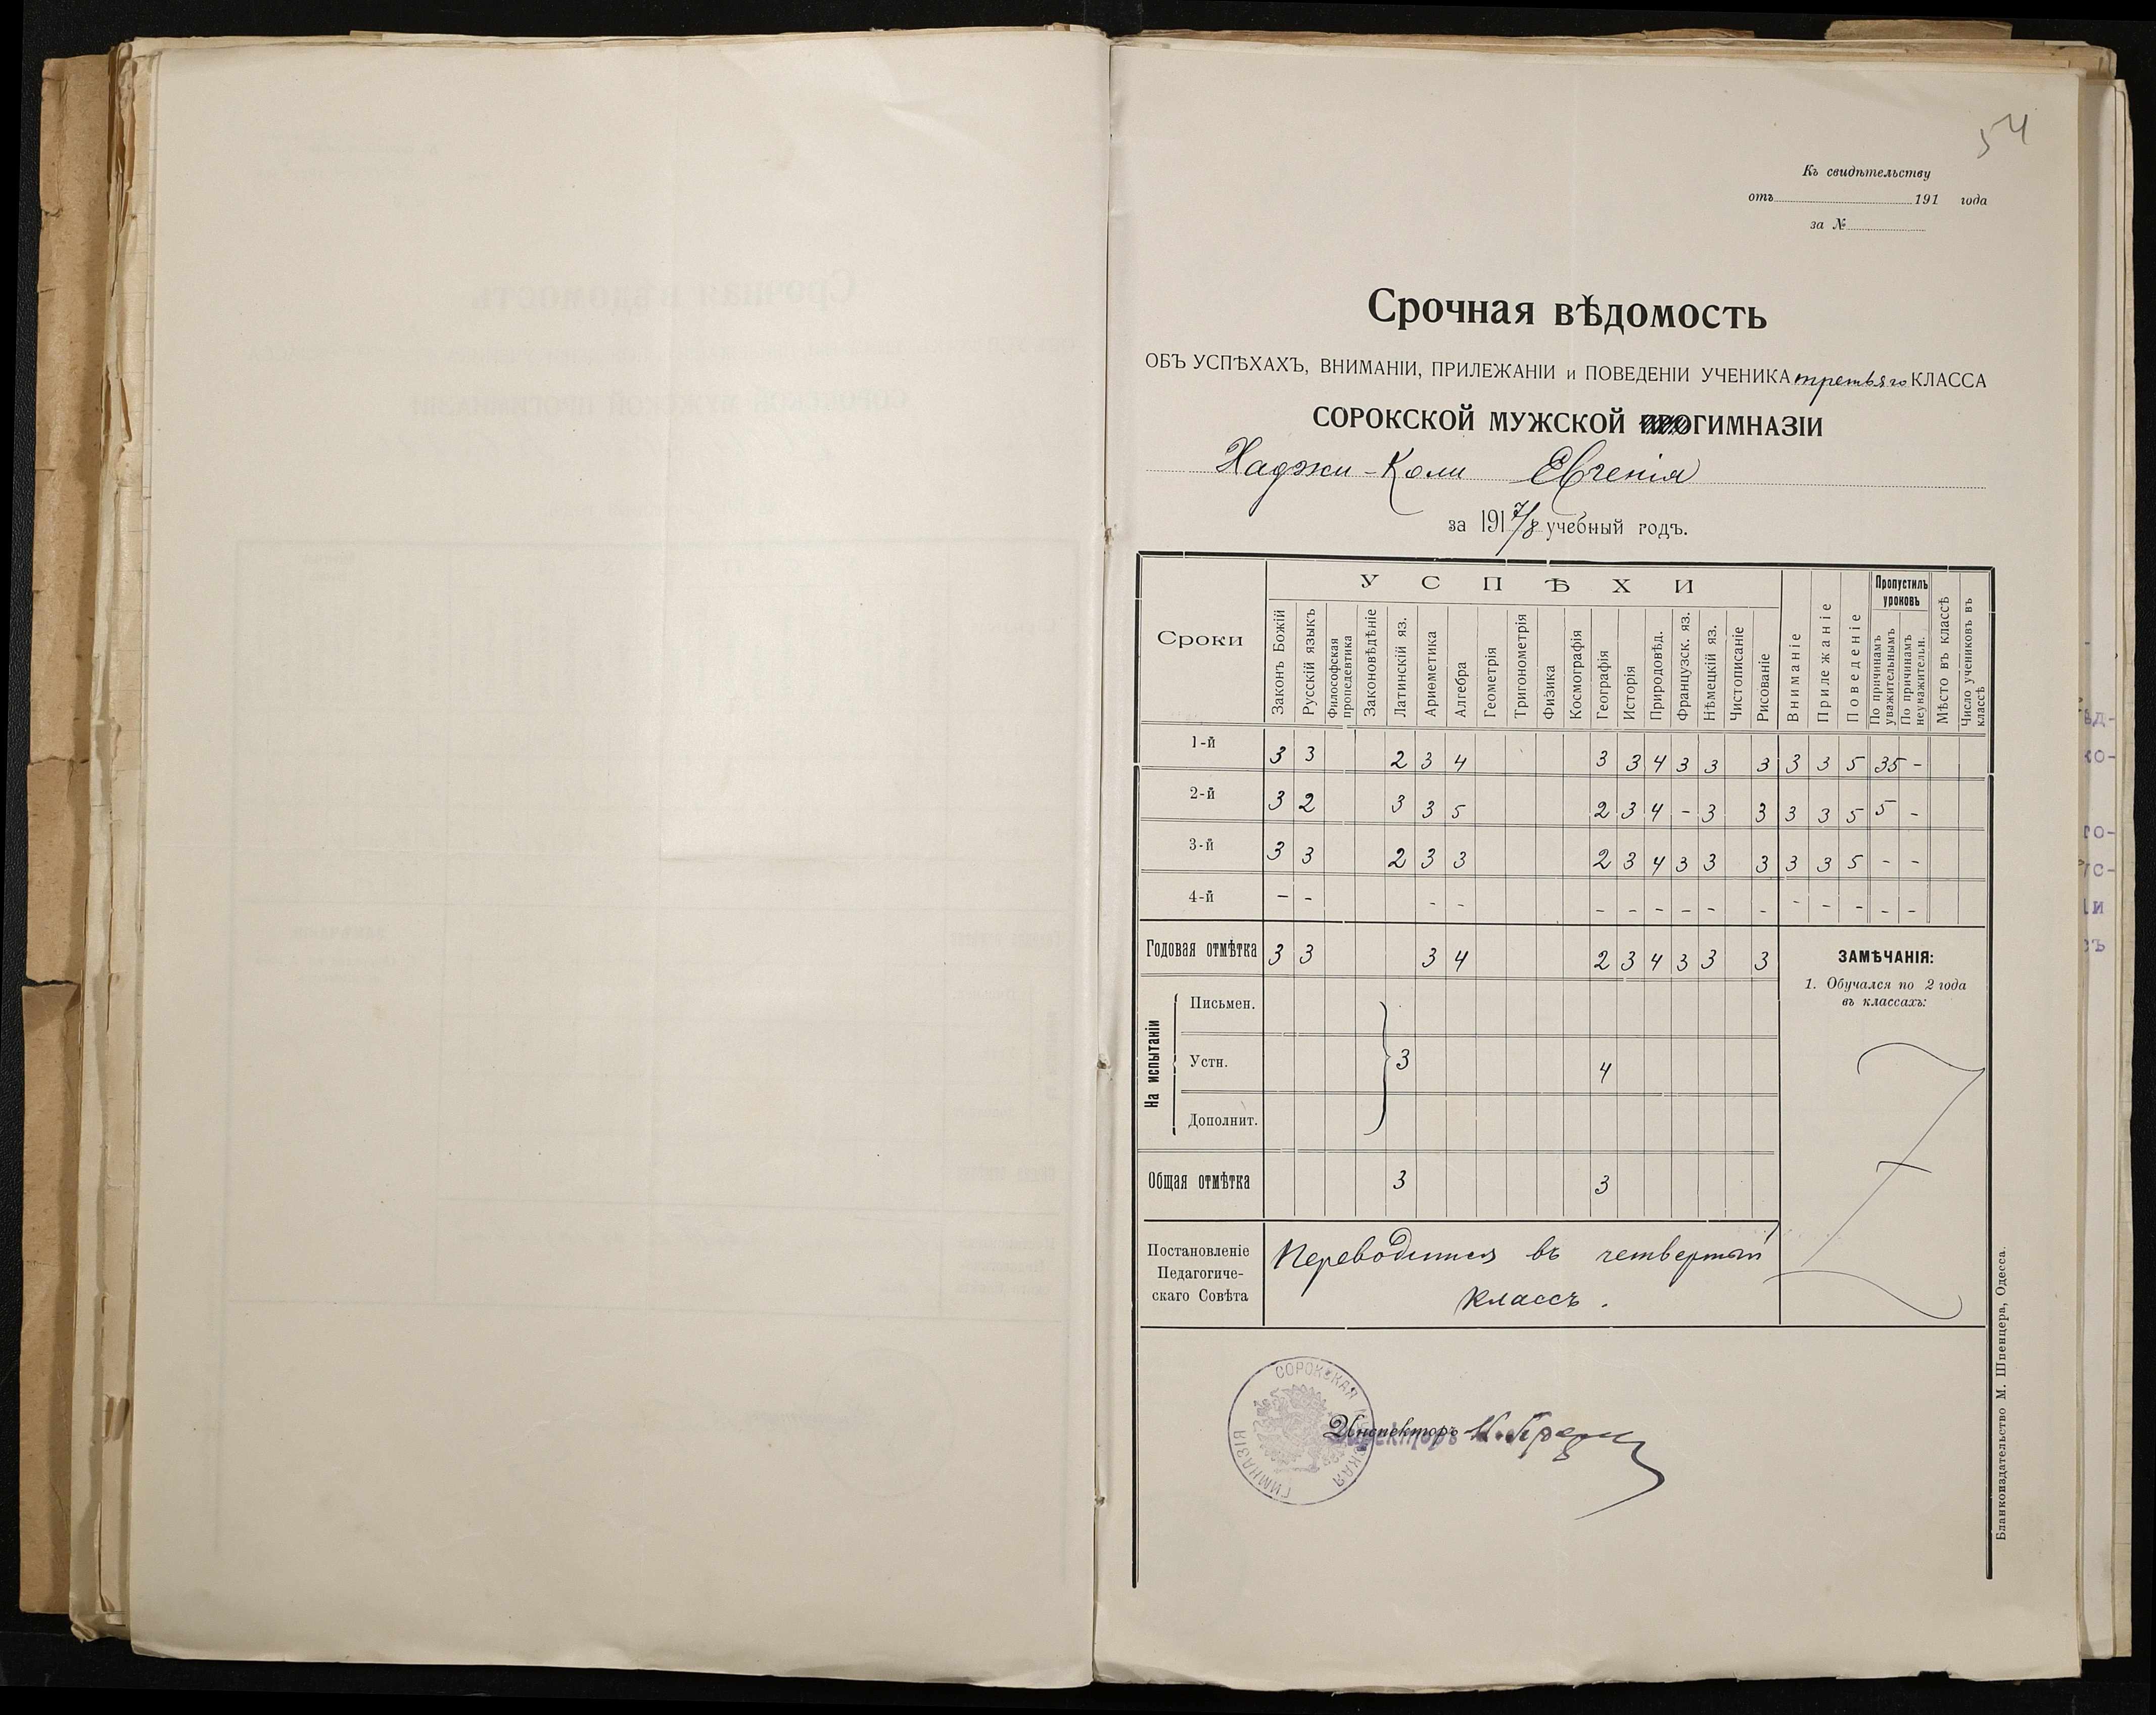 54
Къ свидѣтельству
отъ 191 года
за №
Срочная вѣдомость
ОБЪ УСПѢХАХЪ, ВНИМАНІИ, ПРИЛЕЖАНІИ и ПОВЕДЕНІИ УЧЕНИКА третьяго КЛАССА
СОРОКСКОЙ МУЖСКОЙ ПРОГИМНАЗІИ
Хаджи-Коли Евгенія
за 1917/8 учебный годъ.
Сроки
УСПѢХИ
Законъ Божій
Русскій языкъ
Философская пропедевтика
Законовѣдѣніе
Латинскій яз.
Ариѳметика
Алгебра
Геометрія
Тригонометрія
Физика
Космографія
Географія
Исторія
Природовѣд.
Французск. яз.
Нѣмецкій яз.
Чистописаніе
Рисованіе
Вниманіе
Прилежаніе
Поведеніе
Пропустилъ уроковъ
По причинамъ уважительнымъ
По причинамъ неуважительн.
Мѣсто въ классѣ
Число учениковъ въ классѣ
1-й 3 3 2 3 4 3 3 4 3 3 3 3 3 5 35 -
2-й 3 2 3 3 5 2 3 4 - 3 3 3 3 5 5 -
3-й 3 3 2 3 3 2 3 4 3 3 3 3 3 5 - -
4-й - - - - - - - - - - - - - - -
Годовая отмѣтка 3 3 3 4 2 3 4 3 3 3
ЗАМѢЧАНІЯ:
1. Обучался по 2 года
въ классахъ:
На испытаніи
Письмен.
Устн. 3 4
Дополнит.
Общая отмѣтка 3 3
Постановленіе
Педагогиче-
скаго Совѣта
Переводится въ четвертый
классъ.
СОРОКСКАЯ МУЖСКАЯ ГИМНАЗІЯ
Инспекторъ
Директоръ
Бланкоиздательство М. Шпенцера, Одесса.